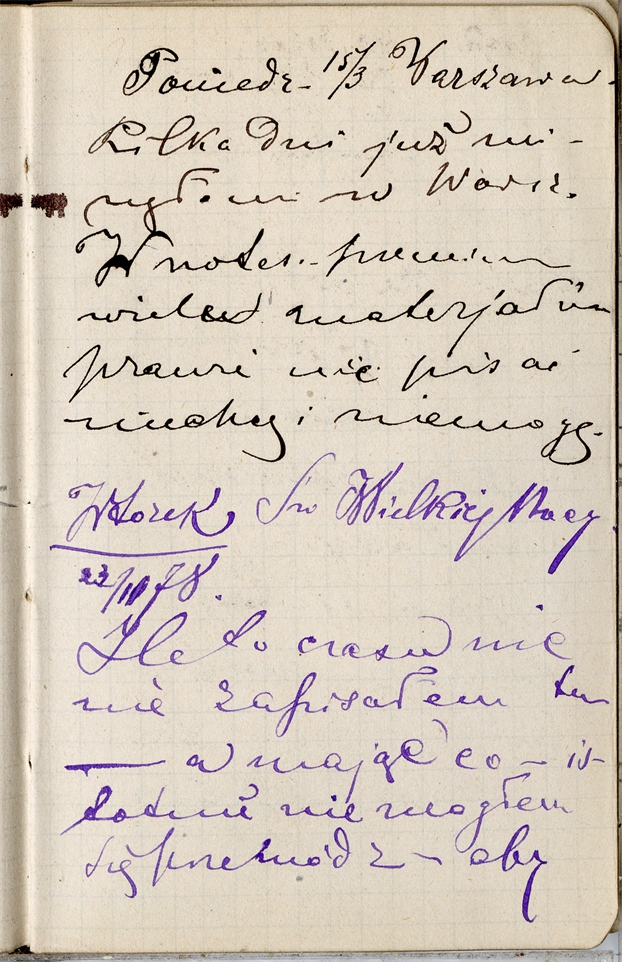 Poniedz- 15/3 Warszawa.
Kilka dni już mi-
nęłem w Warsz.
W notes.-
wieleż materjałów
prawie nic pisać
niechcę i niemogę.
Wtorek Św Wielkiéj Nocy
23/III 78.
Ile to czasu nic
nie zapisałem tu
— a mając co – is-
totnie nie mogłem
się przemódz – aby